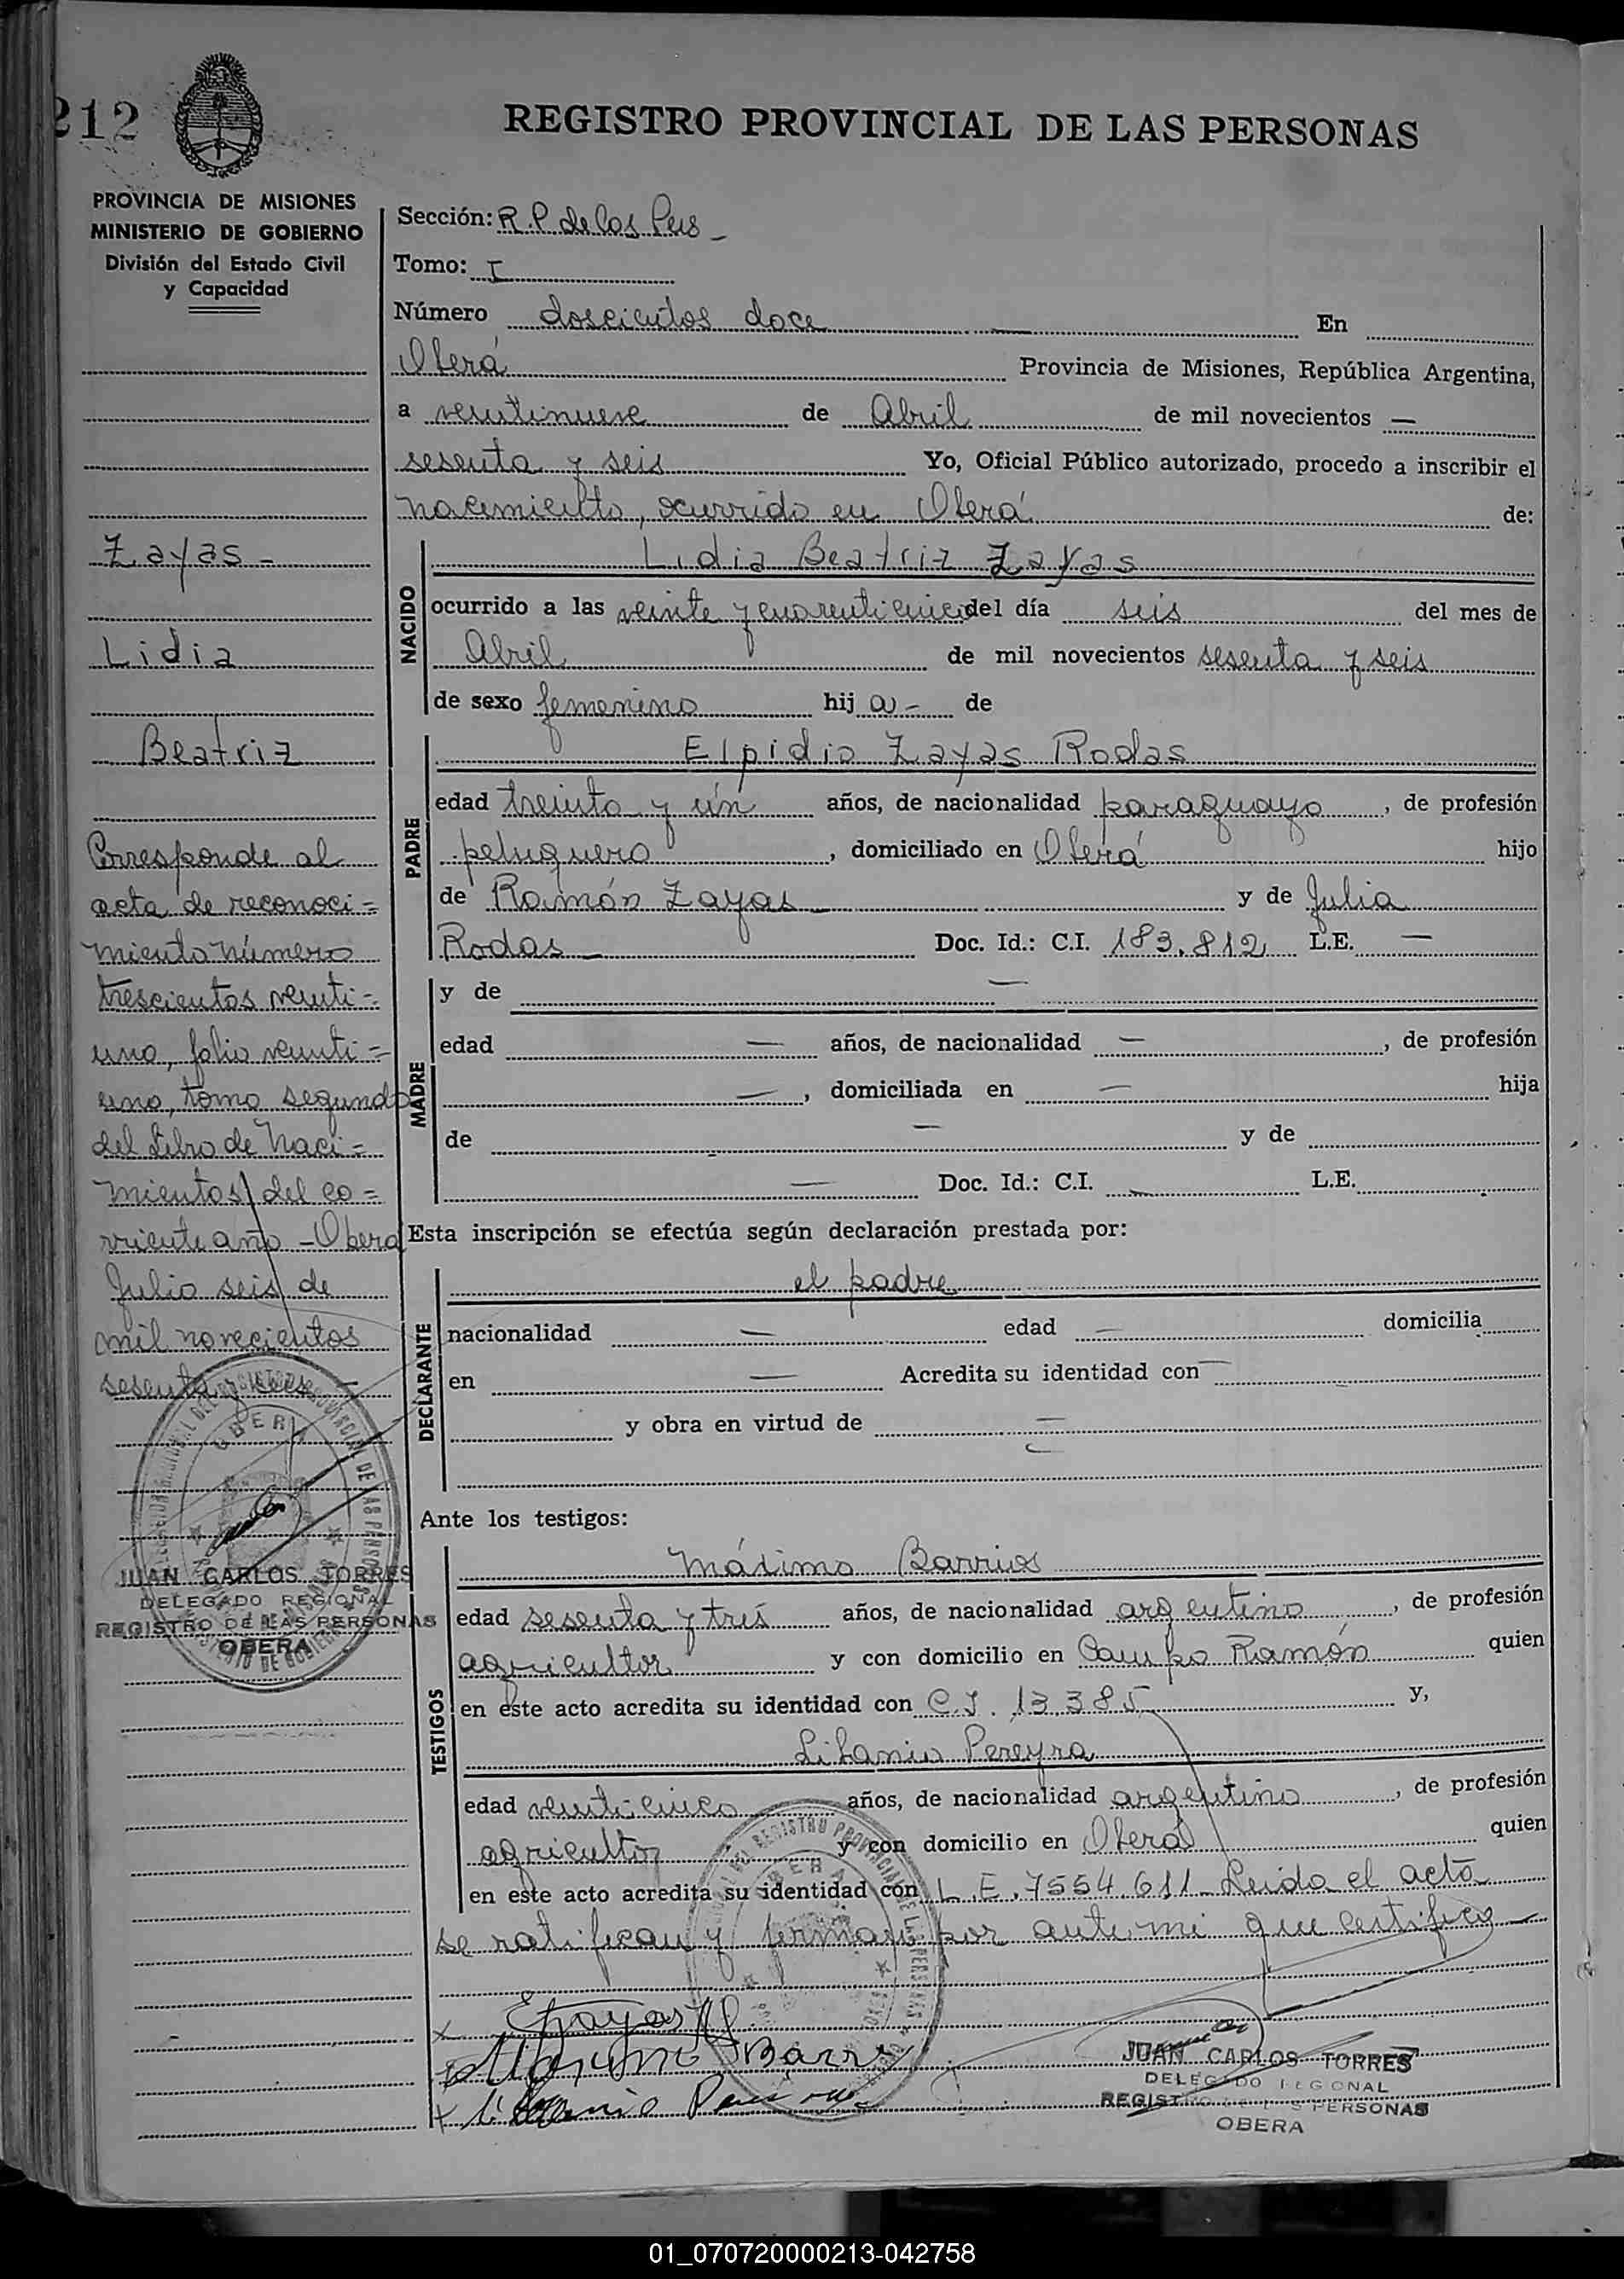 212
REGISTRO PROVINCIAL DE LAS PERSONAS
PROVINCIA DE MISIONES
MINISTERIO DE GOBIERNO
División del Estado Civil
y Capacidad
Zayas -
Lidia
Beatriz
Corresponde al
acta de reconoci=
miento número
trescientos veinti=
uno, folio veinti=
uno, tomo segundo
del Libro de Naci=
mientos del co=
rriente año - Oberá
Julio seis de
mil novecientos
sesenta y seis
OBERA
JUAN CARLOS TORRES
DELEGADO REGIONAL
REGISTRO DE LAS PERSONAS
OBERA
Sección: R.P. de las Pers -
Tomo: I
Número doscientos doce — En
Oberá Provincia de Misiones, República Argentina,
a veintinueve de Abril de mil novecientos —
sesenta y seis Yo, Oficial Público autorizado, procedo a inscribir el
nacimiento, ocurrido en Oberá de:
NACIDO
Lidia Beatriz Zayas
ocurrido a las veinte y cuarenticinco del día seis del mes de
Abril de mil novecientos sesenta y seis
de sexo femenino hij a - de
PADRE
Elpidio Zayas Rodas
edad treinta y ún años, de nacionalidad paraguayo, de profesión
peluquero, domiciliado en Oberá hijo
de Ramón Zayas y de Julia
Rodas — Doc. Id.: C.I. 183.812 L.E. —
MADRE
y de —
edad — años, de nacionalidad —, de profesión
—, domiciliada en — hija
de — y de
— Doc. Id.: C.I. — L.E.
Esta inscripción se efectúa según declaración prestada por:
DECLARANTE
el padre
nacionalidad — edad — domicilia
en — Acredita su identidad con —
y obra en virtud de —
Ante los testigos:
TESTIGOS
Máximo Barrios
edad sesenta y trés años, de nacionalidad argentino, de profesión
agricultor y con domicilio en Campo Ramón quien
en este acto acredita su identidad con C.I. 13.385 y,
Libanio Pereyra
edad veinticinco años, de nacionalidad argentino, de profesión
agricultor y con domicilio en Oberá quien
en este acto acredita su identidad con L.E. 7554.611 - Leida el acta
se ratifican y firman por ante mi que certifico -
JUAN CARLOS TORRES
DELEGADO REGIONAL
REGISTRO DE LAS PERSONAS
OBERA
01_070720000213-042758